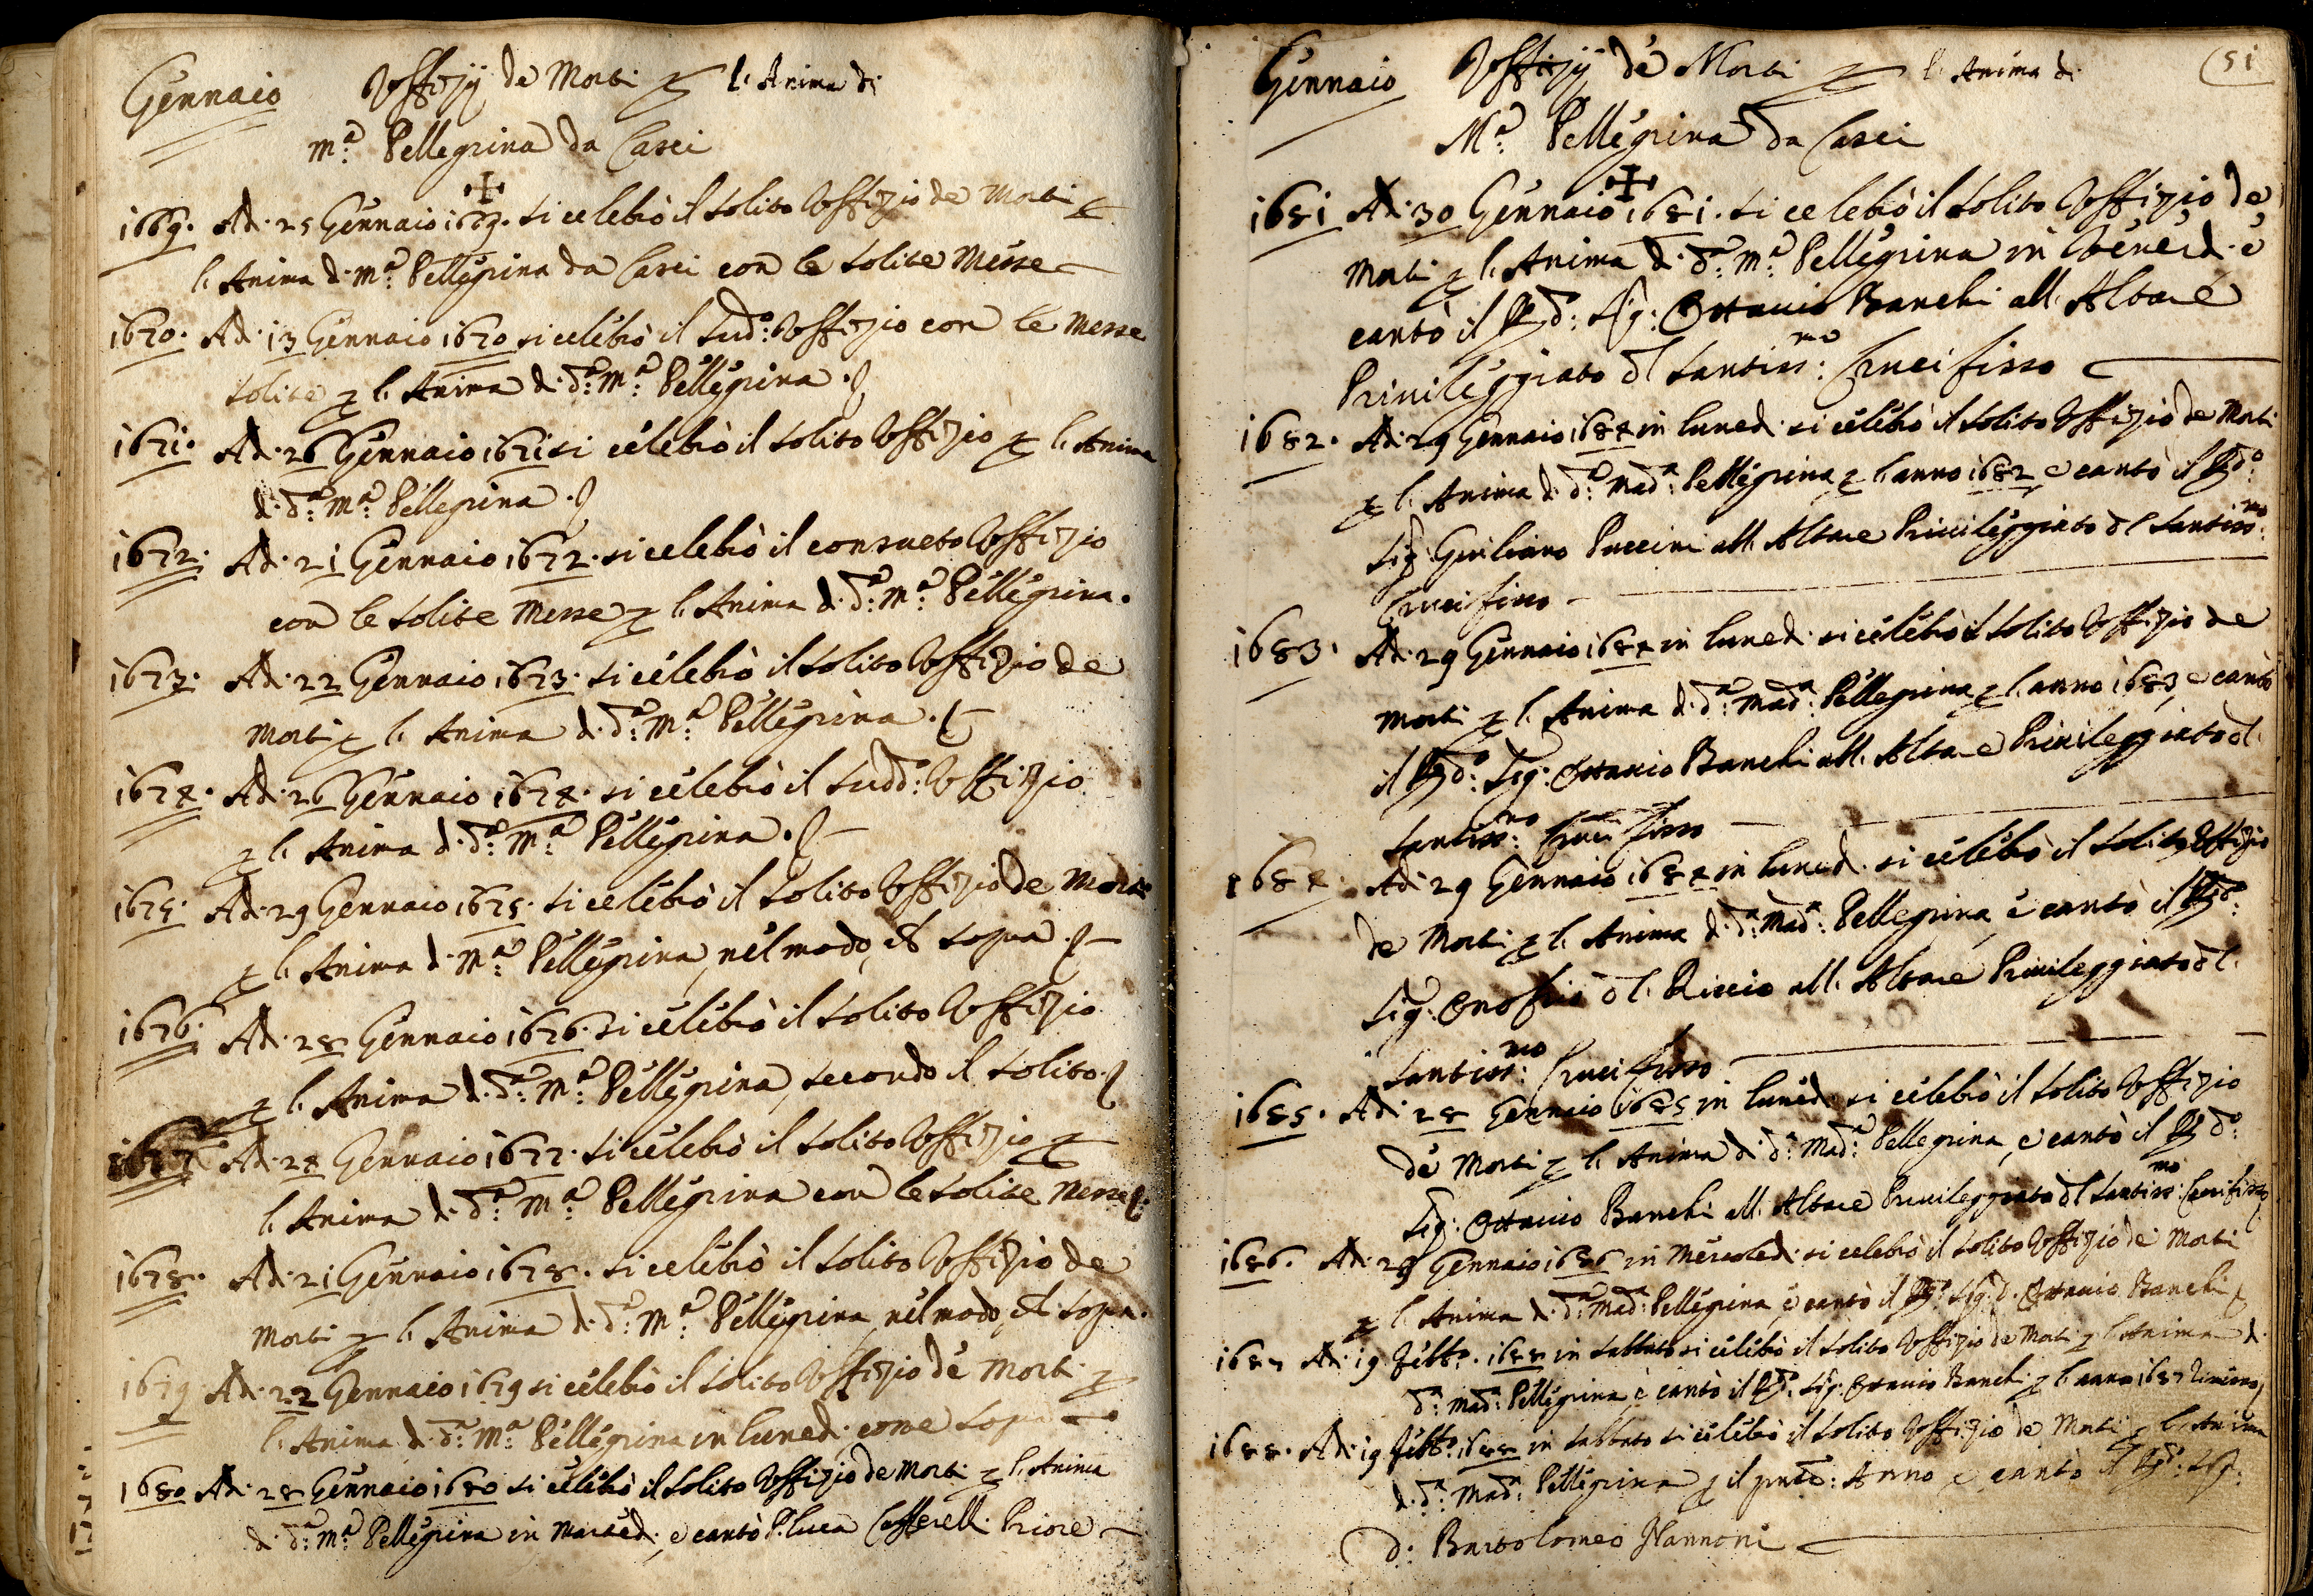 Gennaio Offizij de Morti p l'Anima di
M.ª Pellegrina da Casci
1669. Ad: 25 Gennaio 1669. si celebrò il solito Offizio de Morti p
l'Anima di M.ª Pellegrina da Casci con le solite Messe
1670. Ad: 13 Gennaio 1670 si celebrò il sud.º Offizio con le Messe
solite p l'Anima di d.ª M.ª Pellegrina.
1671. Ad: 26 Gennaio 1671 si celebrò il solito Offizio p l'Anima
di d.ª M.ª Pellegrina.
1672. Ad: 21 Gennaio 1672. si celebrò il consueto Offizio
con le solite Messe p l'Anima di d.ª M.ª Pellegrina.
1673. Ad: 22 Gennaio 1673. si celebrò il solito Offizio de
Morti p l'Anima di d.ª M.ª Pellegrina.
1674. Ad: 26 Gennaio 1674. si celebrò il sudd.º Offizio
p l'Anima di d.ª M.ª Pellegrina.
1675. Ad: 29 Gennaio 1675. si celebrò il solito Offizio de Morti
p l'Anima di M.ª Pellegrina, nel modo, di sopra.
1676. Ad: 28 Gennaio 1676. si celebrò il solito Offizio
p l'Anima di d.ª M.ª Pellegrina, secondo il solito.
1677 Ad: 24 Gennaio 1677. si celebrò il solito Offizio p
l'Anima di d.ª M.ª Pellegrina con le solite Messe.
1678. Ad: 21 Gennaio 1678. si celebrò il solito Offizio de
Morti p l'Anima di d.ª M.ª Pellegrina, nel modo, di sopra.
1679 Ad: 22 Gennaio 1679 si celebrò il solito Offizio de Morti p
l'Anima di d.ª M.ª Pellegrina in lunedì come sopra
1680 Ad: 28 Gennaio 1680 si celebrò il solito Offizio de Morti p l'Anima
di d.ª M.ª Pellegrina in Martedì, e cantò P. Luca Cafferelli Priore
Gennaio Offizij de Morti p l'Anima di 51
M.ª Pellegrina da Casci
1681 Ad: 30 Gennaio 1681. si celebrò il solito Offizio de
Morti p l'Anima di d.ª M.ª Pellegrina in Venerdì e
cantò il R.do: Sig: Ottavio Banchi all'Altare
Privileggiato del Santiss.mo: Crucifisso
1682. Ad: 29 Gennaio 1684 in lunedì si celebrò il solito Offizio de Morti
p l'Anima di d.ª Mad.ª Pellegrina p l'anno 1682 e cantò il R.do:
Sig: Giuliano Puccini all'Altare Privileggiato del Santiss.mo:
Crucifisso
1683. Ad: 29 Gennaio 1684 in lunedì si celebrò il solito Offizio de
Morti p l'Anima di d.ª Mad.ª Pellegrina p l'anno 1683, e cantò
il R.do: Sig: Ottavio Banchi all'Altare Privileggiato del
Santiss.mo: Crucifisso
1684. Ad: 29 Gennaio 1684 in lunedì si celebrò il solito Offizio
de Morti p l'Anima di d.ª Mad.ª Pellegrina, e cantò il R.do:
Sig: Onofrio del Riccio all'Altare Privileggiato del
Santiss.mo: Crucifisso
1685. Ad: 28 Gennaio 1685 in lunedì si celebrò il solito Offizio
de Morti p l'Anima di d.ª Mad.ª Pellegrina, e cantò il R.do:
Sig: Ottavio Banchi all'Altare Privileggiato del Santiss.mo: Crucifisso
1686. Ad: 29 Gennaio 1686 in Mercoledì si celebrò il solito Offizio de Morti
p l'Anima di d.ª Mad.ª Pellegrina, e cantò il R.do Sig: D. Ottavio Banchi
1687 Ad: 19 Febb.º 1688 in Sabbato si celebrò il solito Offizio de Morti p l'Anima di
d.ª Mad.ª Pellegrina e cantò il R.do Sig: Ottavio Banchi p l'anno 1687
1688. Ad: 19 Febb.º 1688 in Sabbato si celebrò il solito Offizio de Morti p l'Anima
di d.ª Mad.ª Pellegrina p il pnte: Anno e cantò il R.do: Sig:
D: Bartolomeo Nannoni